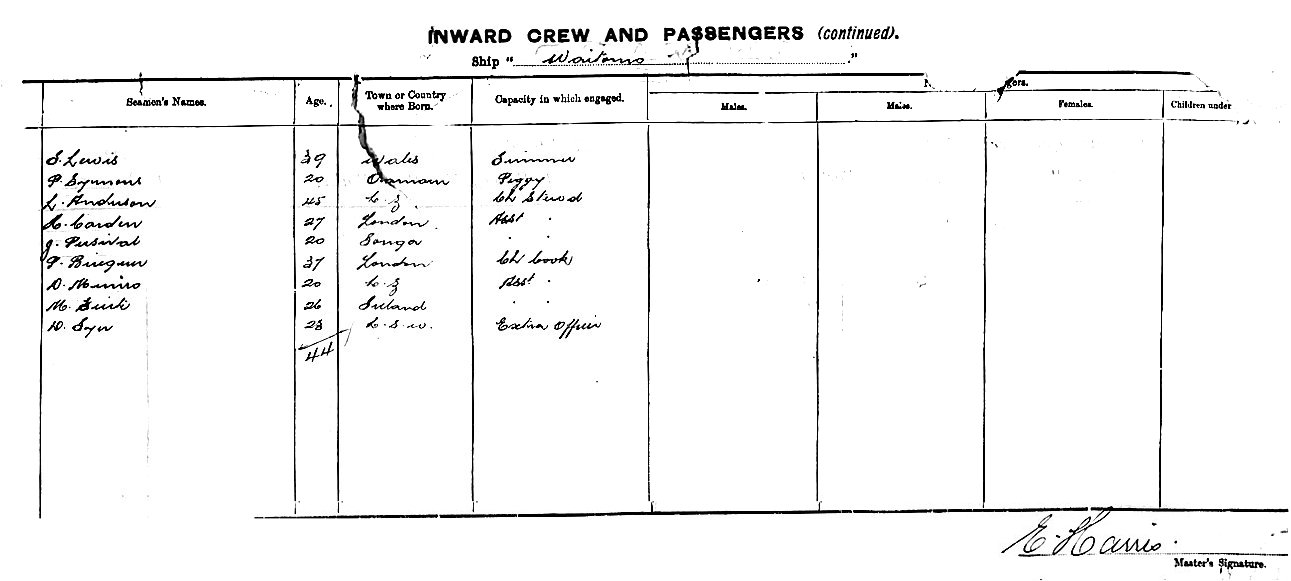 INWARD CREW AND PASSENGERS (continued).
Ship " Waitomo "
gers.
Seamen's Names. Age. Town or Country where Born. Capacity in which engaged. Males. Males. Females. Children under
S. Lewis 39 Wales
P. Symons 20 Peggy
L. Anderson 45 N. Z. Ch Steward
Carden 27 London Asst "
J. 20 Tonga " "
P. 37 London Ch Cook
D. Munro 20 N. Z Asst "
M. 26 Ireland " "
D. 23 N. S. W. Extra Officer
44
E. Harris.
Master's Signature.